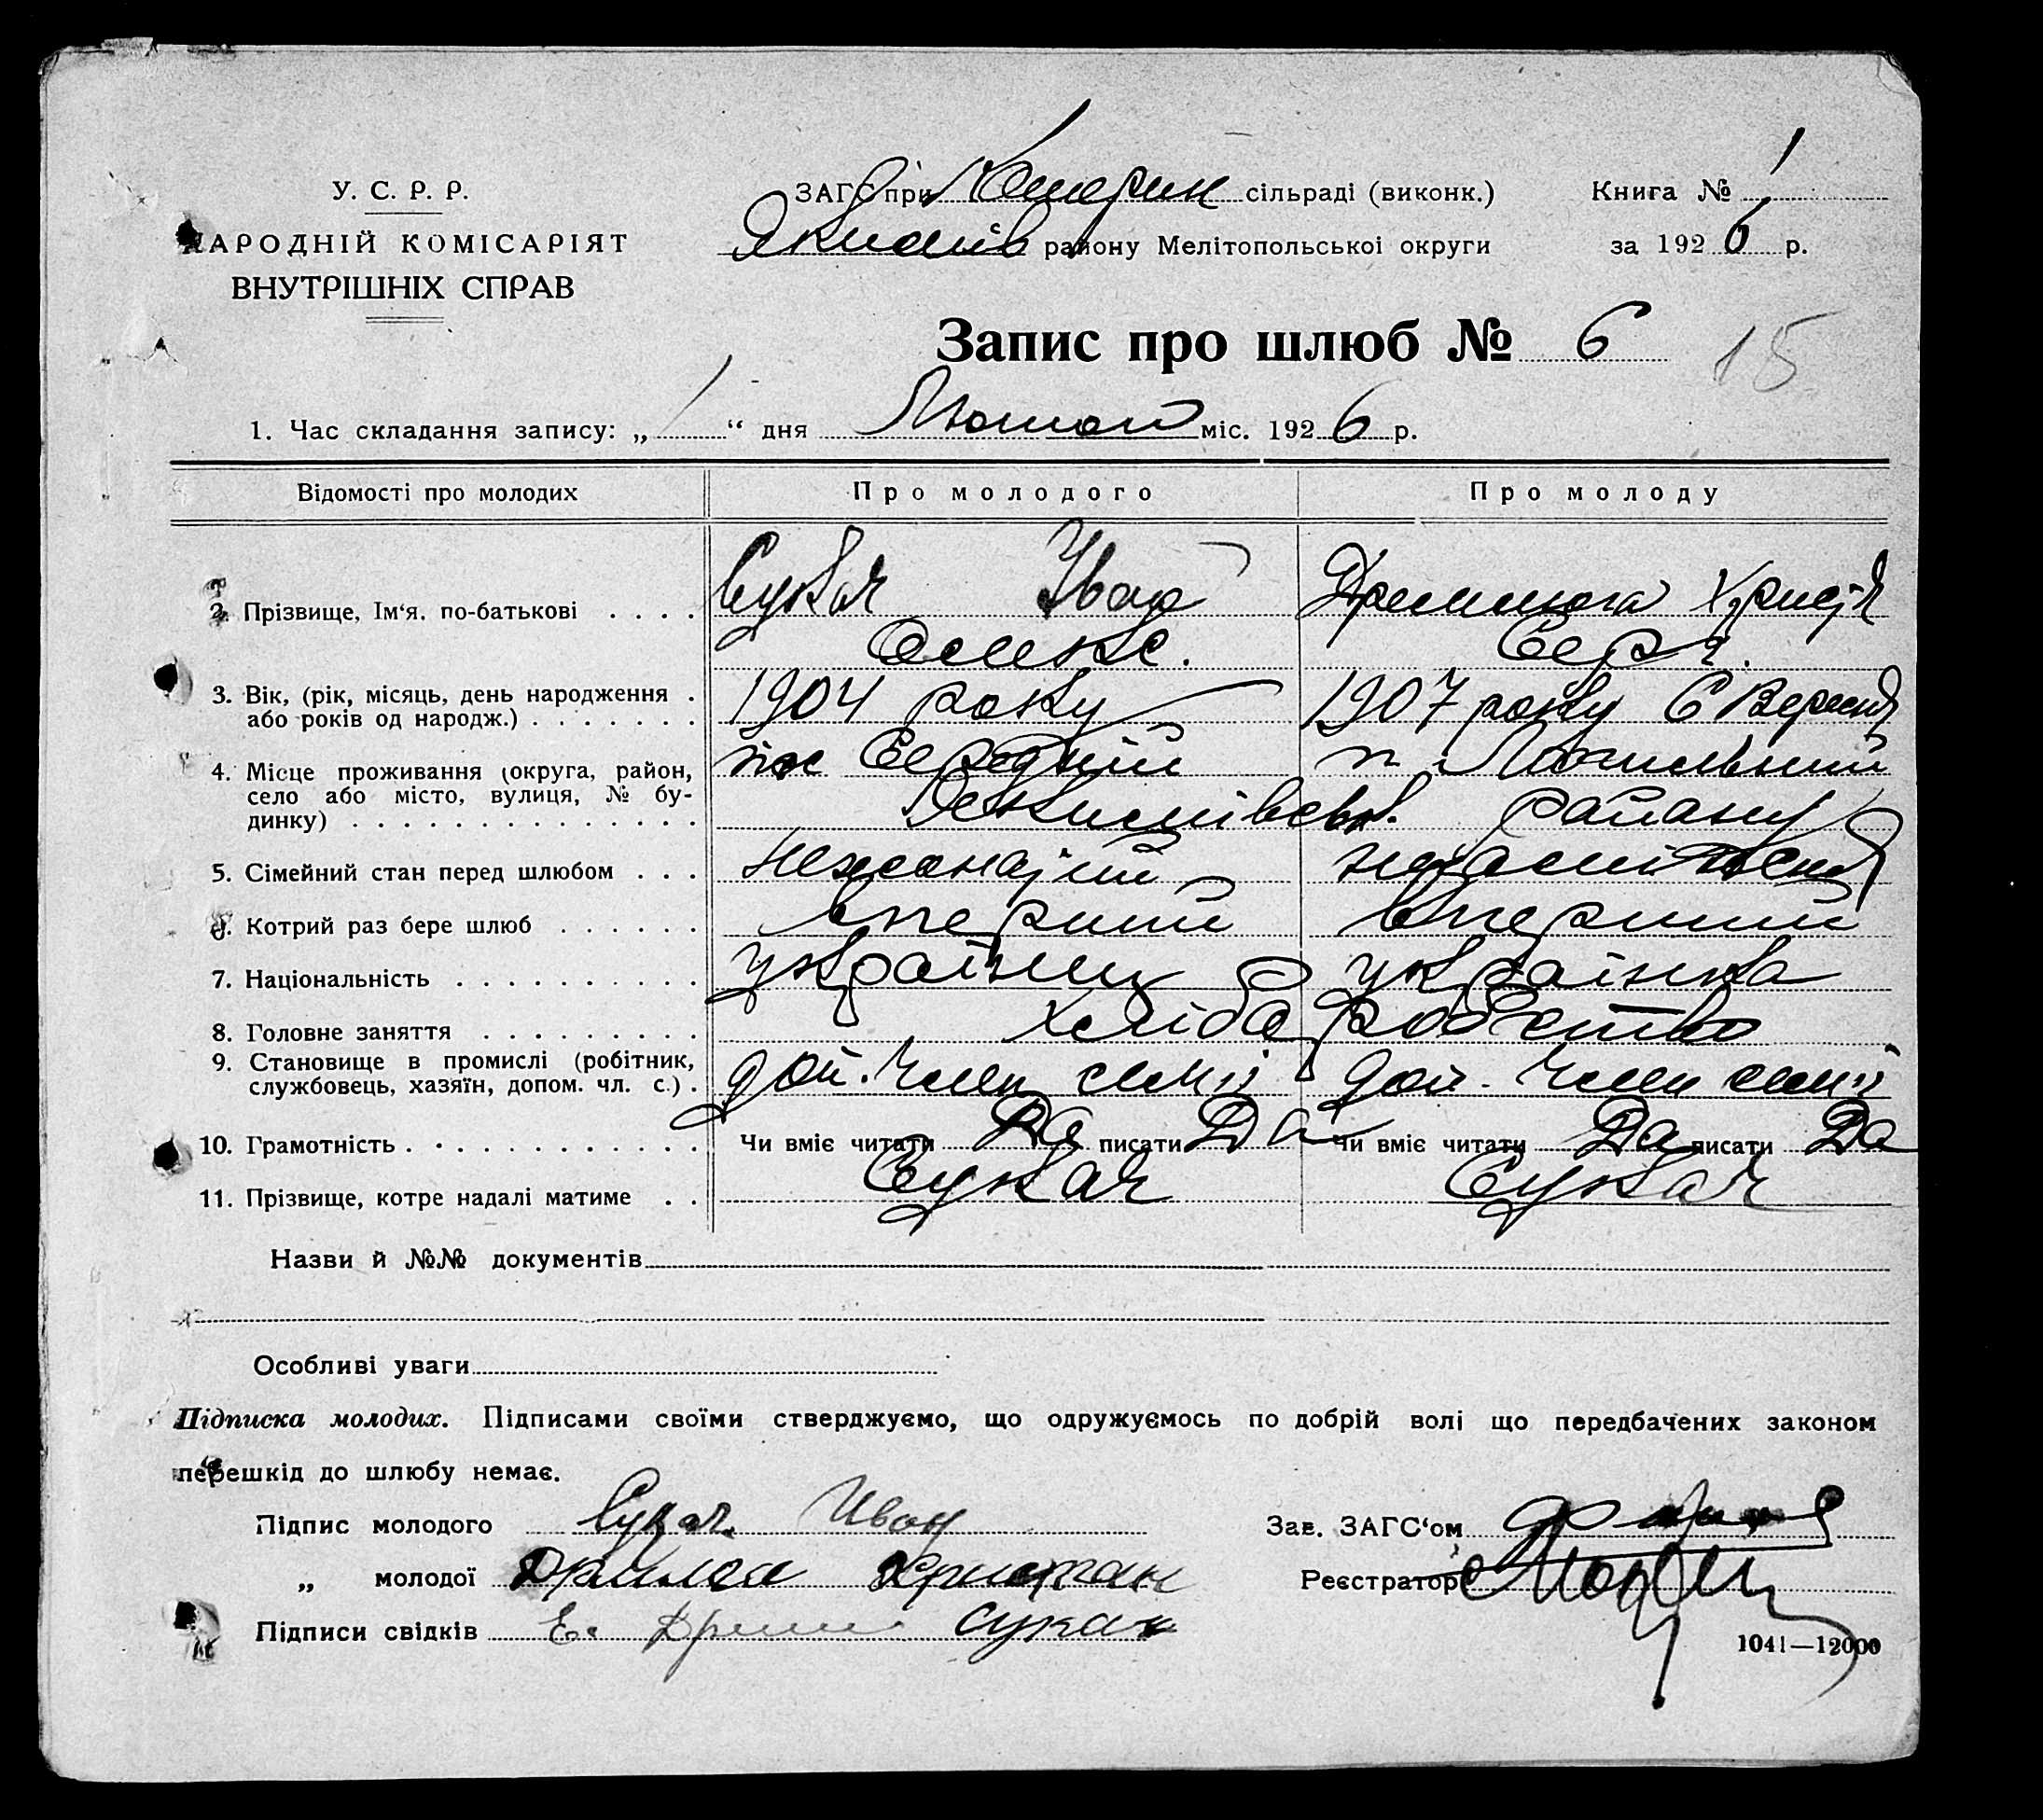 У. С. Р. Р.
НАРОДНІЙ КОМІСАРІЯТ
ВНУТРІШНІХ СПРАВ
ЗАГС при Катерин сільраді (виконк.)
Якимів району Мелітопольської округи
Книга № 1
за 1926 р.
Запис про шлюб № 6
15
1. Час складання запису: „ 1 “ дня Лютого міс. 1926 р.
Відомості про молодих Про молодого Про молоду
2. Прізвище, Ім‘я, по-батькові . . . . Сукач Іван Христя
Олекс. Серг.
3. Вік, (рік, місяць, день народження . 1904 року 1907 року 6 Вересня
або років од народж.) . . . . . . .
4. Місце проживання (округа, район, Середній
село або місто, вулиця, № бу- Якимівськ. району
динку) . . . . . . . . . . . . . .
5. Сімейний стан перед шлюбом . . . нежонатий
6. Котрий раз бере шлюб . . . . . . вперший вперший
7. Національність . . . . . . . . . . українец українка
8. Головне заняття . . . . . . . . . хліборобство
9. Становище в промислі (робітник, дой. член семії дой. член семії
службовець, хазяїн, допом. чл. с.) .
10. Грамотність . . . . . . . . . . . Чи вміє читати Да писати Да Чи вміє читати Да писати Да
11. Прізвище, котре надалі матиме . . Сукач Сукач
Назви й №№ документів
Особливі уваги
Підписка молодих. Підписами своїми стверджуємо, що одружуємось по добрій волі що передбачених законом
перешкід до шлюбу немає.
Підпис молодого Сукач Иван
Зав. ЗАГС‘ом
„ молодої
Реєстратор
Підписи свідків Е. Сукач
1041—12000